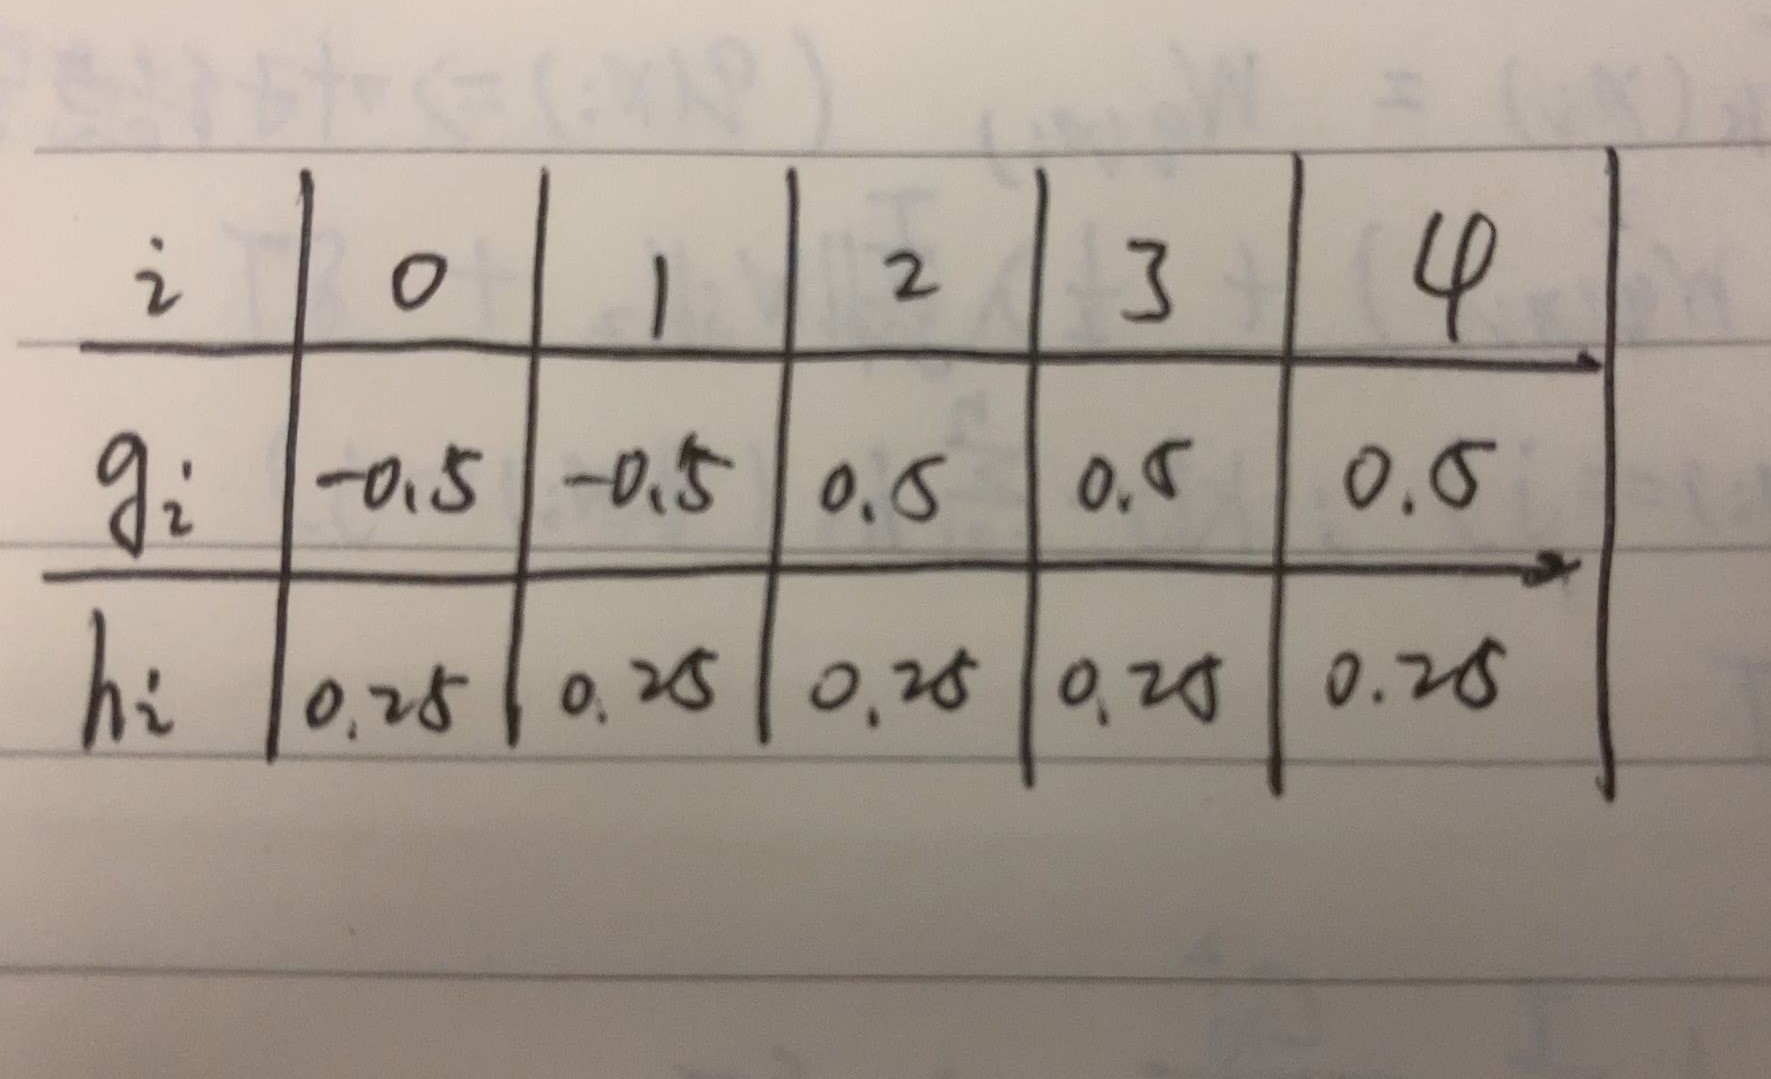 i 0 1 2 3 4
gi -0.5 -0.5 0.5 0.5 0.5
hi 0.25 0.25 0.25 0.25 0.25